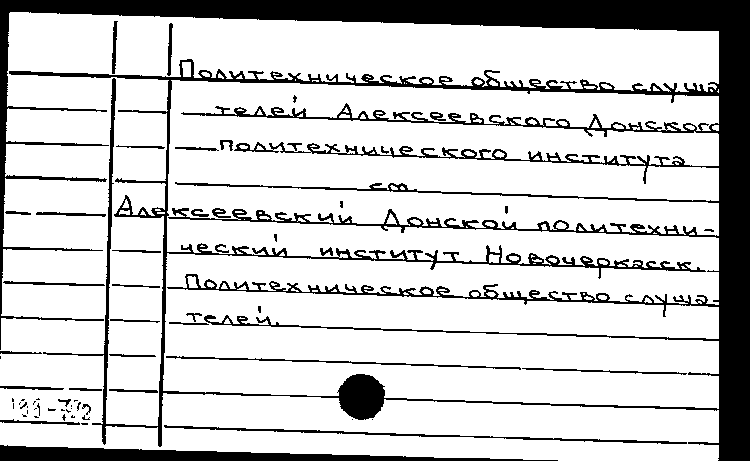 Политехническое общество слуша
телей Алексеевского Донского
политехнического института
см.
Алексеевский Донской политехни-
ческий институт. Новочеркасск.
Политехническое общество слуша-
телей.